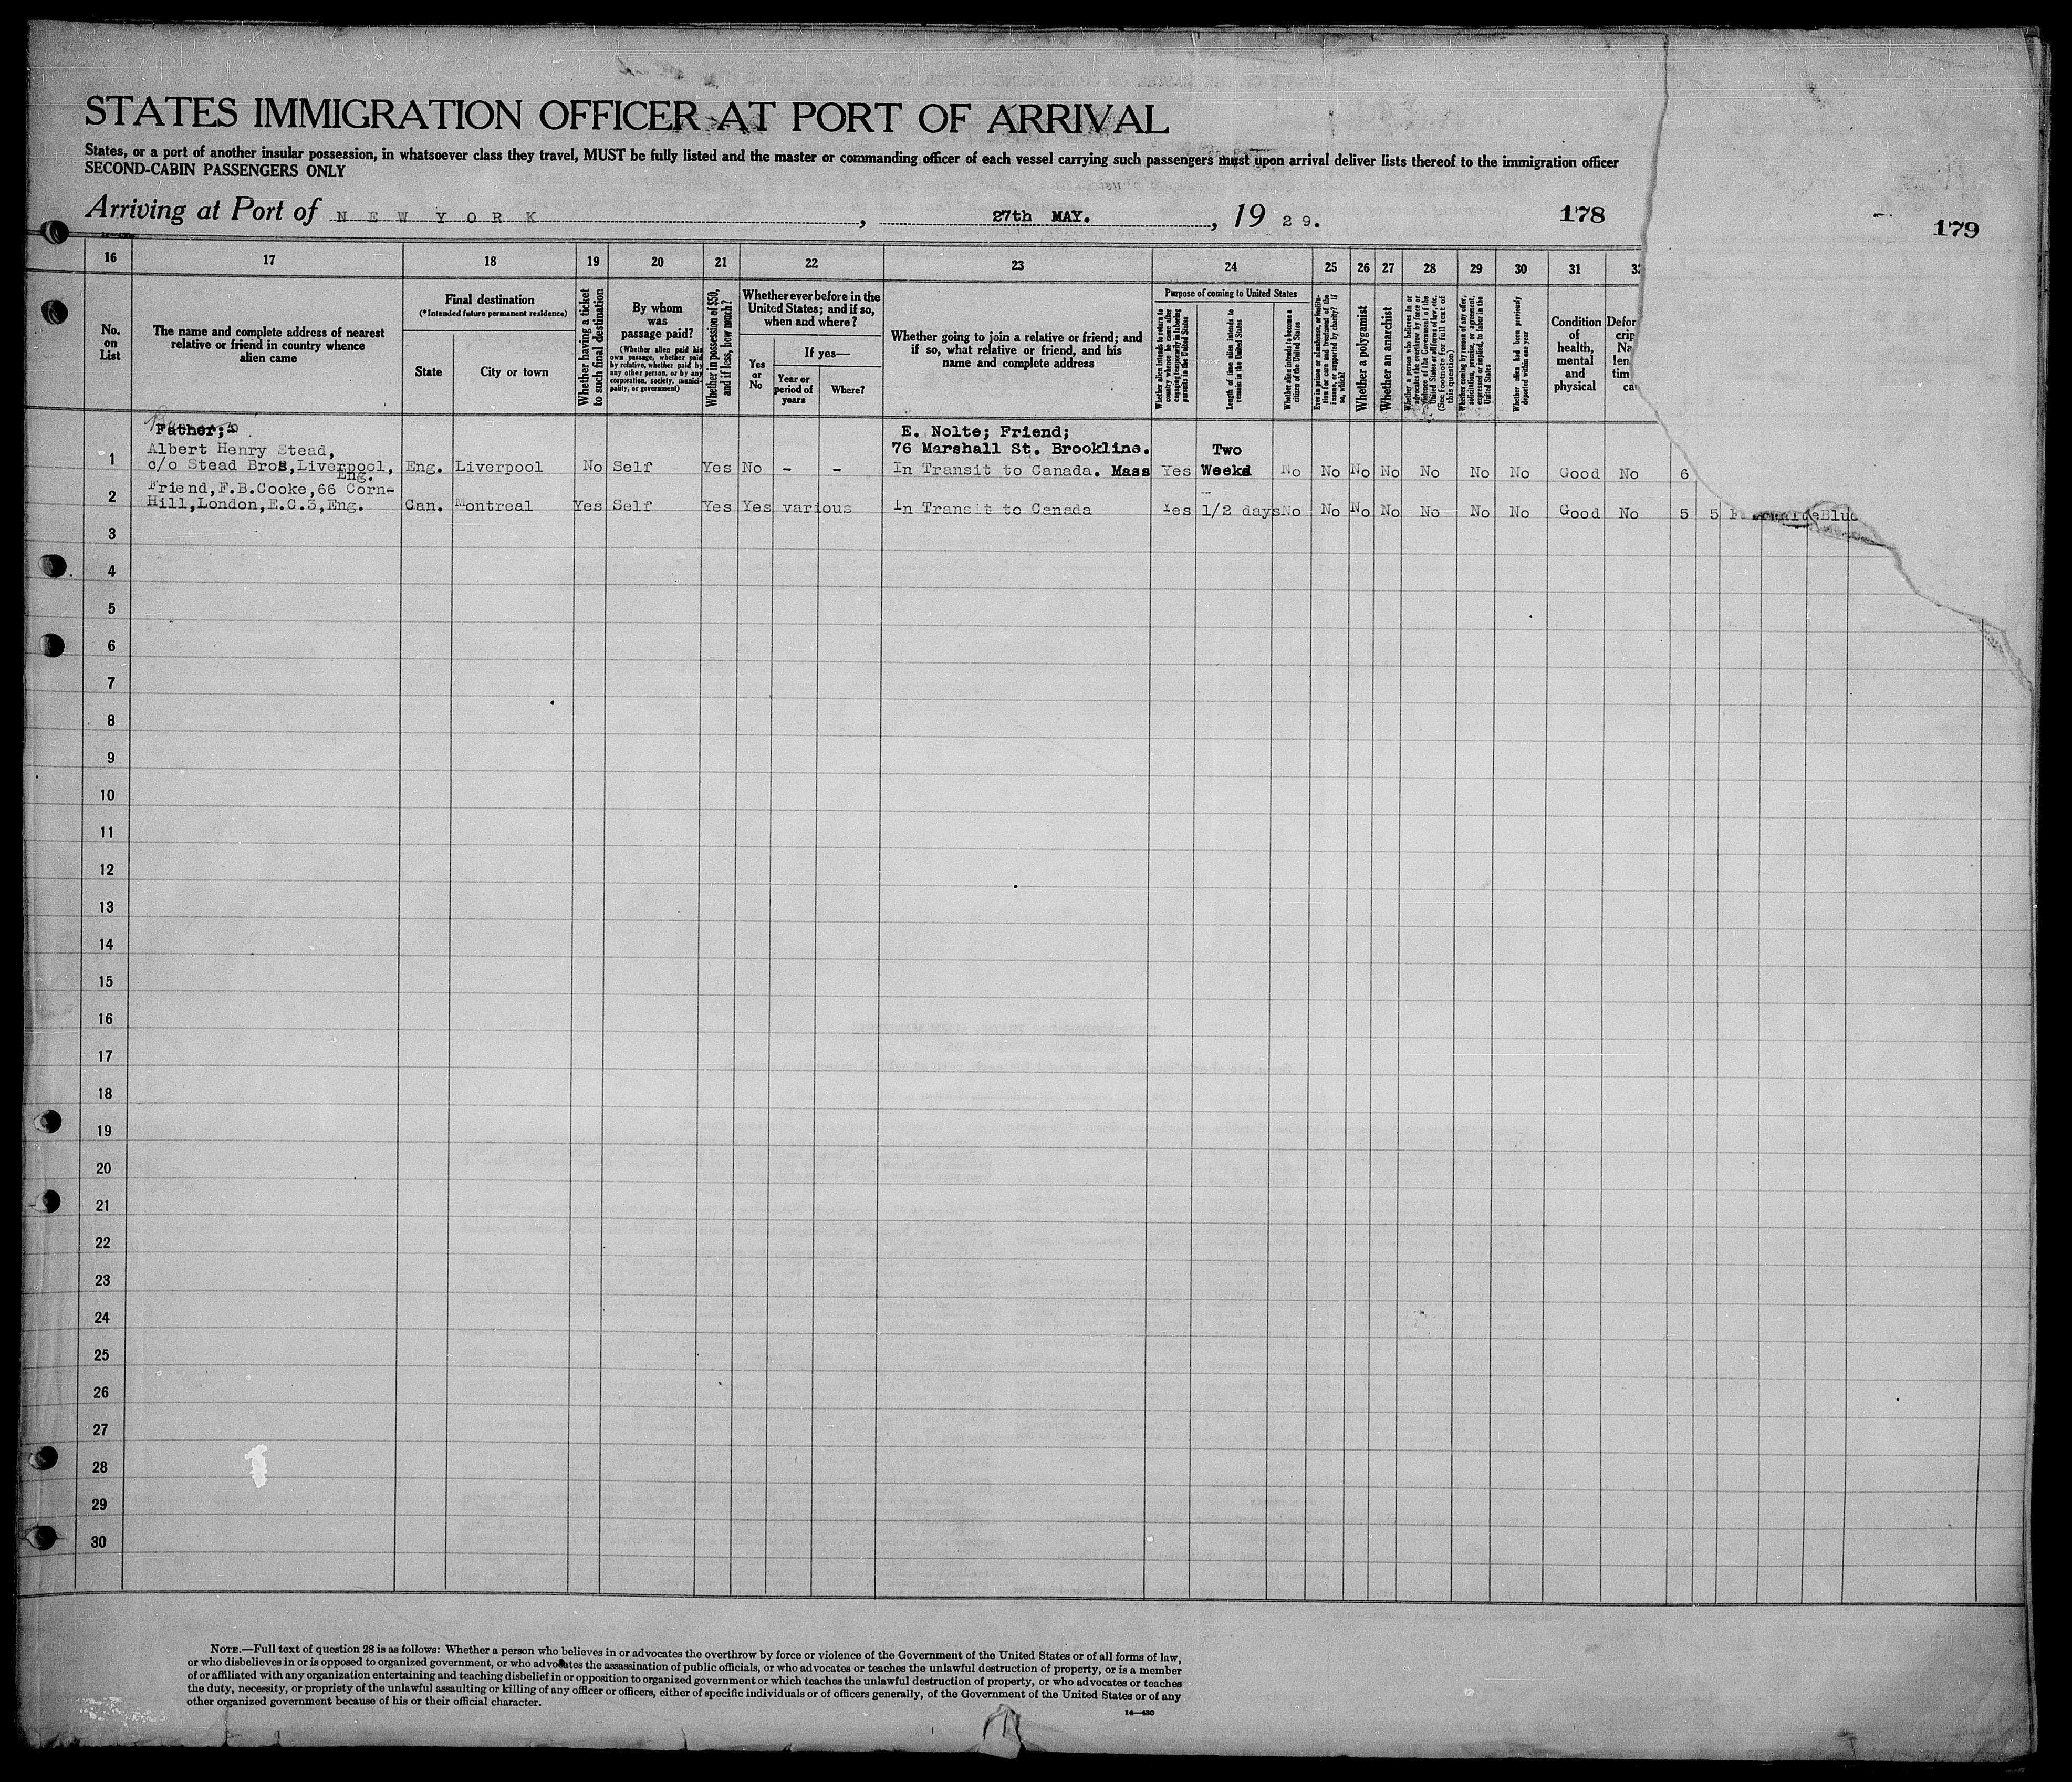 STATES IMMIGRATION OFFICER AT PORT OF ARRIVAL
States, or a port of another insular possession, in whatsoever class they travel, MUST be fully listed and the master or commanding officer of each vessel carrying such passengers must upon arrival deliver lists thereof to the immigration officer
SECOND-CABIN PASSENGERS ONLY
Arriving at Port of NEW YORK, 27th MAY., 19 29. 178
179
16 17 18 19 20 21 22 23 24 25 26 27 28 29 30 31
No. on List
The name and complete address of nearest relative or friend in country whence alien came
Final destination
(*Intended future permanent residence)
State
City or town
Whether having a ticket to such final destination
By whom was passage paid?
(Whether alien paid his own passage, whether paid by relative, whether paid by any other person, or by any corporation, society, municipality, or government)
Whether in possession of $50, and if less, how much?
Whether ever before in the United States; and if so, when and where?
Yes or No
If yes—
Year or period of years
Where?
Whether going to join a relative or friend; and if so, what relative or friend, and his name and complete address
Purpose of coming to United States
Whether alien intends to return to country whence he came after engaging temporarily in laboring pursuits in the United States
Length of time alien intends to remain in the United States
Whether alien intends to become a citizen of the United States
Ever in prison or almshouse, or institution for care and treatment of the insane, or supported by charity? If so, which?
Whether a polygamist
Whether an anarchist
Whether a person who believes in or advocates the overthrow by force or violence of the Government of the United States or all forms of law, etc. (See footnote for full text of this question)
Whether coming by reason of any offer, solicitation, promise, or agreement, expressed or implied, to labor in the United States
Whether alien had been previously deported within one year
Condition of health, mental and physical
Father;-
Albert Henry Stead,
c/o Stead Bros, Liverpool, Eng.
1 Eng. Liverpool No Self Yes No - -
E. Nolte; Friend;
76 Marshall St. Brookline.
In Transit to Canada. Mass
Yes Two Weeks No No No No No No No Good No 6
Friend, F.B.Cooke, 66 Corn-
Hill, London, E.C.3, Eng.
2 Can. Montreal Yes Self Yes Yes various In Transit to Canada Yes 1/2 days No No No No No No No Good No 5 5
3
4
5
6
7
8
9
10
11
12
13
14
15
16
17
18
19
20
21
22
23
24
25
26
27
28
29
30
NOTE.—Full text of question 28 is as follows: Whether a person who believes in or advocates the overthrow by force or violence of the Government of the United States or of all forms of law,
or who disbelieves in or is opposed to organized government, or who advocates the assassination of public officials, or who advocates or teaches the unlawful destruction of property, or is a member
of or affiliated with any organization entertaining and teaching disbelief in or opposition to organized government or which teaches the unlawful destruction of property, or who advocates or teaches
the duty, necessity, or propriety of the unlawful assaulting or killing of any officer or officers, either of specific individuals or of officers generally, of the Government of the United States or of any
other organized government because of his or their official character.
14—430